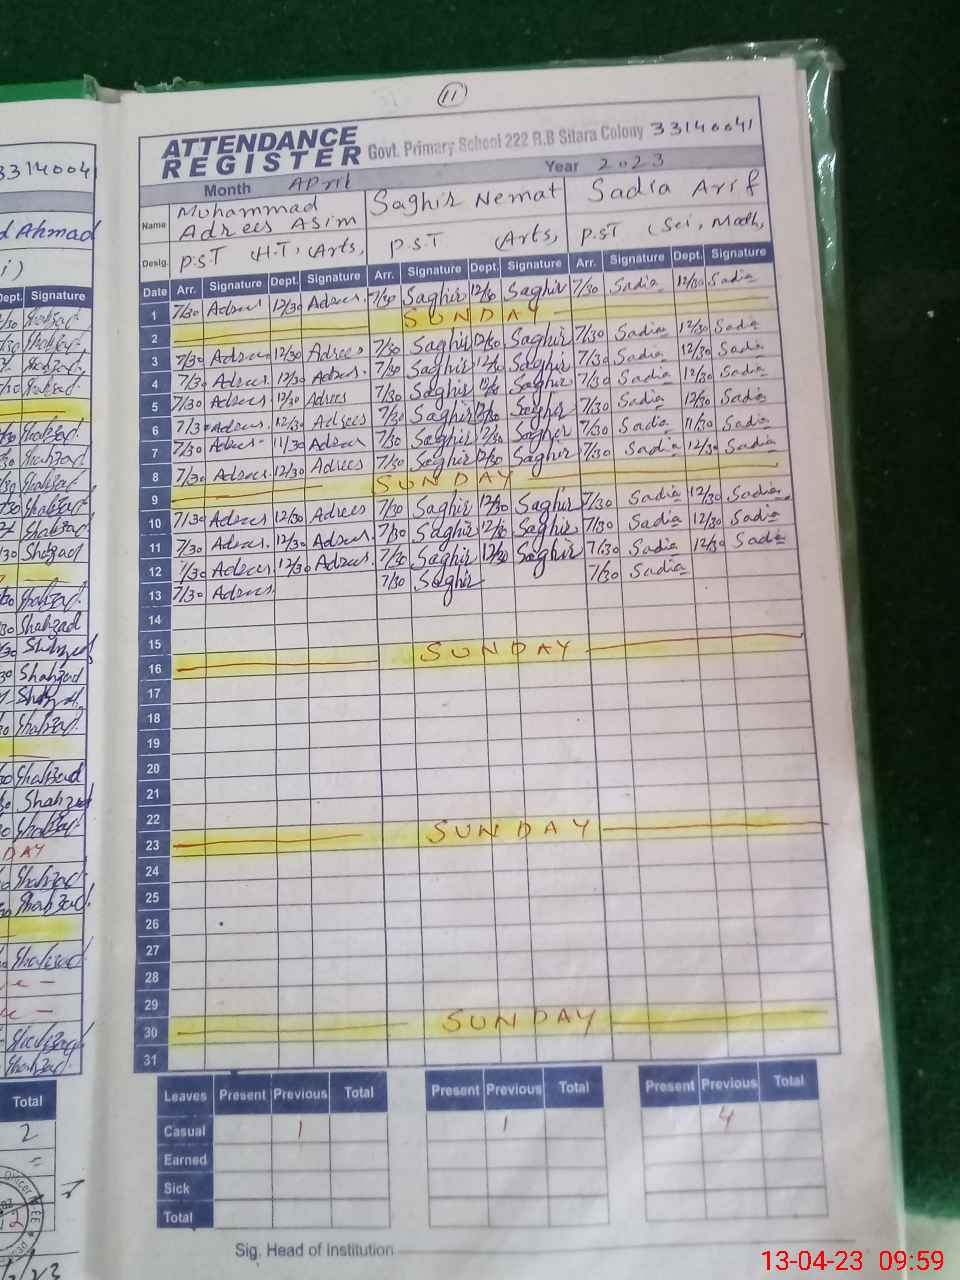 11
ATTENDANCE REGISTER
Govt. Primary School 222 R.B Sitara Colony 33140041
Month April Year 2023
Name Muhammad Adrees Asim Saghir Nemat Sadia Arif
Desig. P.S.T (H.T, (Arts, P.S.T (Arts, P.S.T (Sci, Math,
Date Arr. Signature Dept. Signature Arr. Signature Dept. Signature Arr. Signature Dept. Signature
1 7/30 Adrees 12/30 Adrees 7/30 Saghir 12/30 Saghir 7/30 Sadia 12/30 Sadia
2 SUNDAY
3 7/30 Adrees 12/30 Adrees 7/30 Saghir 12/30 Saghir 7/30 Sadia 12/30 Sadia
4 7/30 Adrees. 12/30 Adrees. 7/30 Saghir 12/30 Saghir 7/30 Sadia 12/30 Sadia
5 7/30 Adrees. 12/30 Adrees 7/30 Saghir 12/30 Saghir 7/30 Sadia 12/30 Sadia
6 7/30 Adrees. 12/30 Adrees 7/30 Saghir 12/30 Saghir 7/30 Sadia 12/30 Sadia
7 7/30 Adrees 11/30 Adrees 7/30 Saghir Saghir 7/30 Sadia 11/30 Sadia
8 7/30 Adrees. 12/30 Adrees 7/30 Saghir 12/30 Saghir 7/30 Sadia 12/30 Sadia
9 SUNDAY
10 7/30 Adrees 12/30 Adrees 7/30 Saghir 12/30 Saghir 7/30 Sadia 12/30 Sadia
11 7/30 Adrees. 12/30 Adrees. 7/30 Saghir 12/30 Saghir 7/30 Sadia 12/30 Sadia
12 7/30 Adrees 12/30 Adrees. 7/30 Saghir 12/30 Saghir 7/30 Sadia 12/30 Sadia
13 7/30 Adrees. 7/30 Saghir 7/30 Sadia
14
15
16 SUNDAY
17
18
19
20
21
22
23 SUNDAY
24
25
26
27
28
29
30 SUNDAY
31
Leaves Present Previous Total Present Previous Total Present Previous Total
Casual 1 1 4
Earned
Sick
Total
Sig. Head of Institution
33140041
d Ahmad
Dept. Signature
Shahzad
DAY
Total
2
13-04-23 09:59